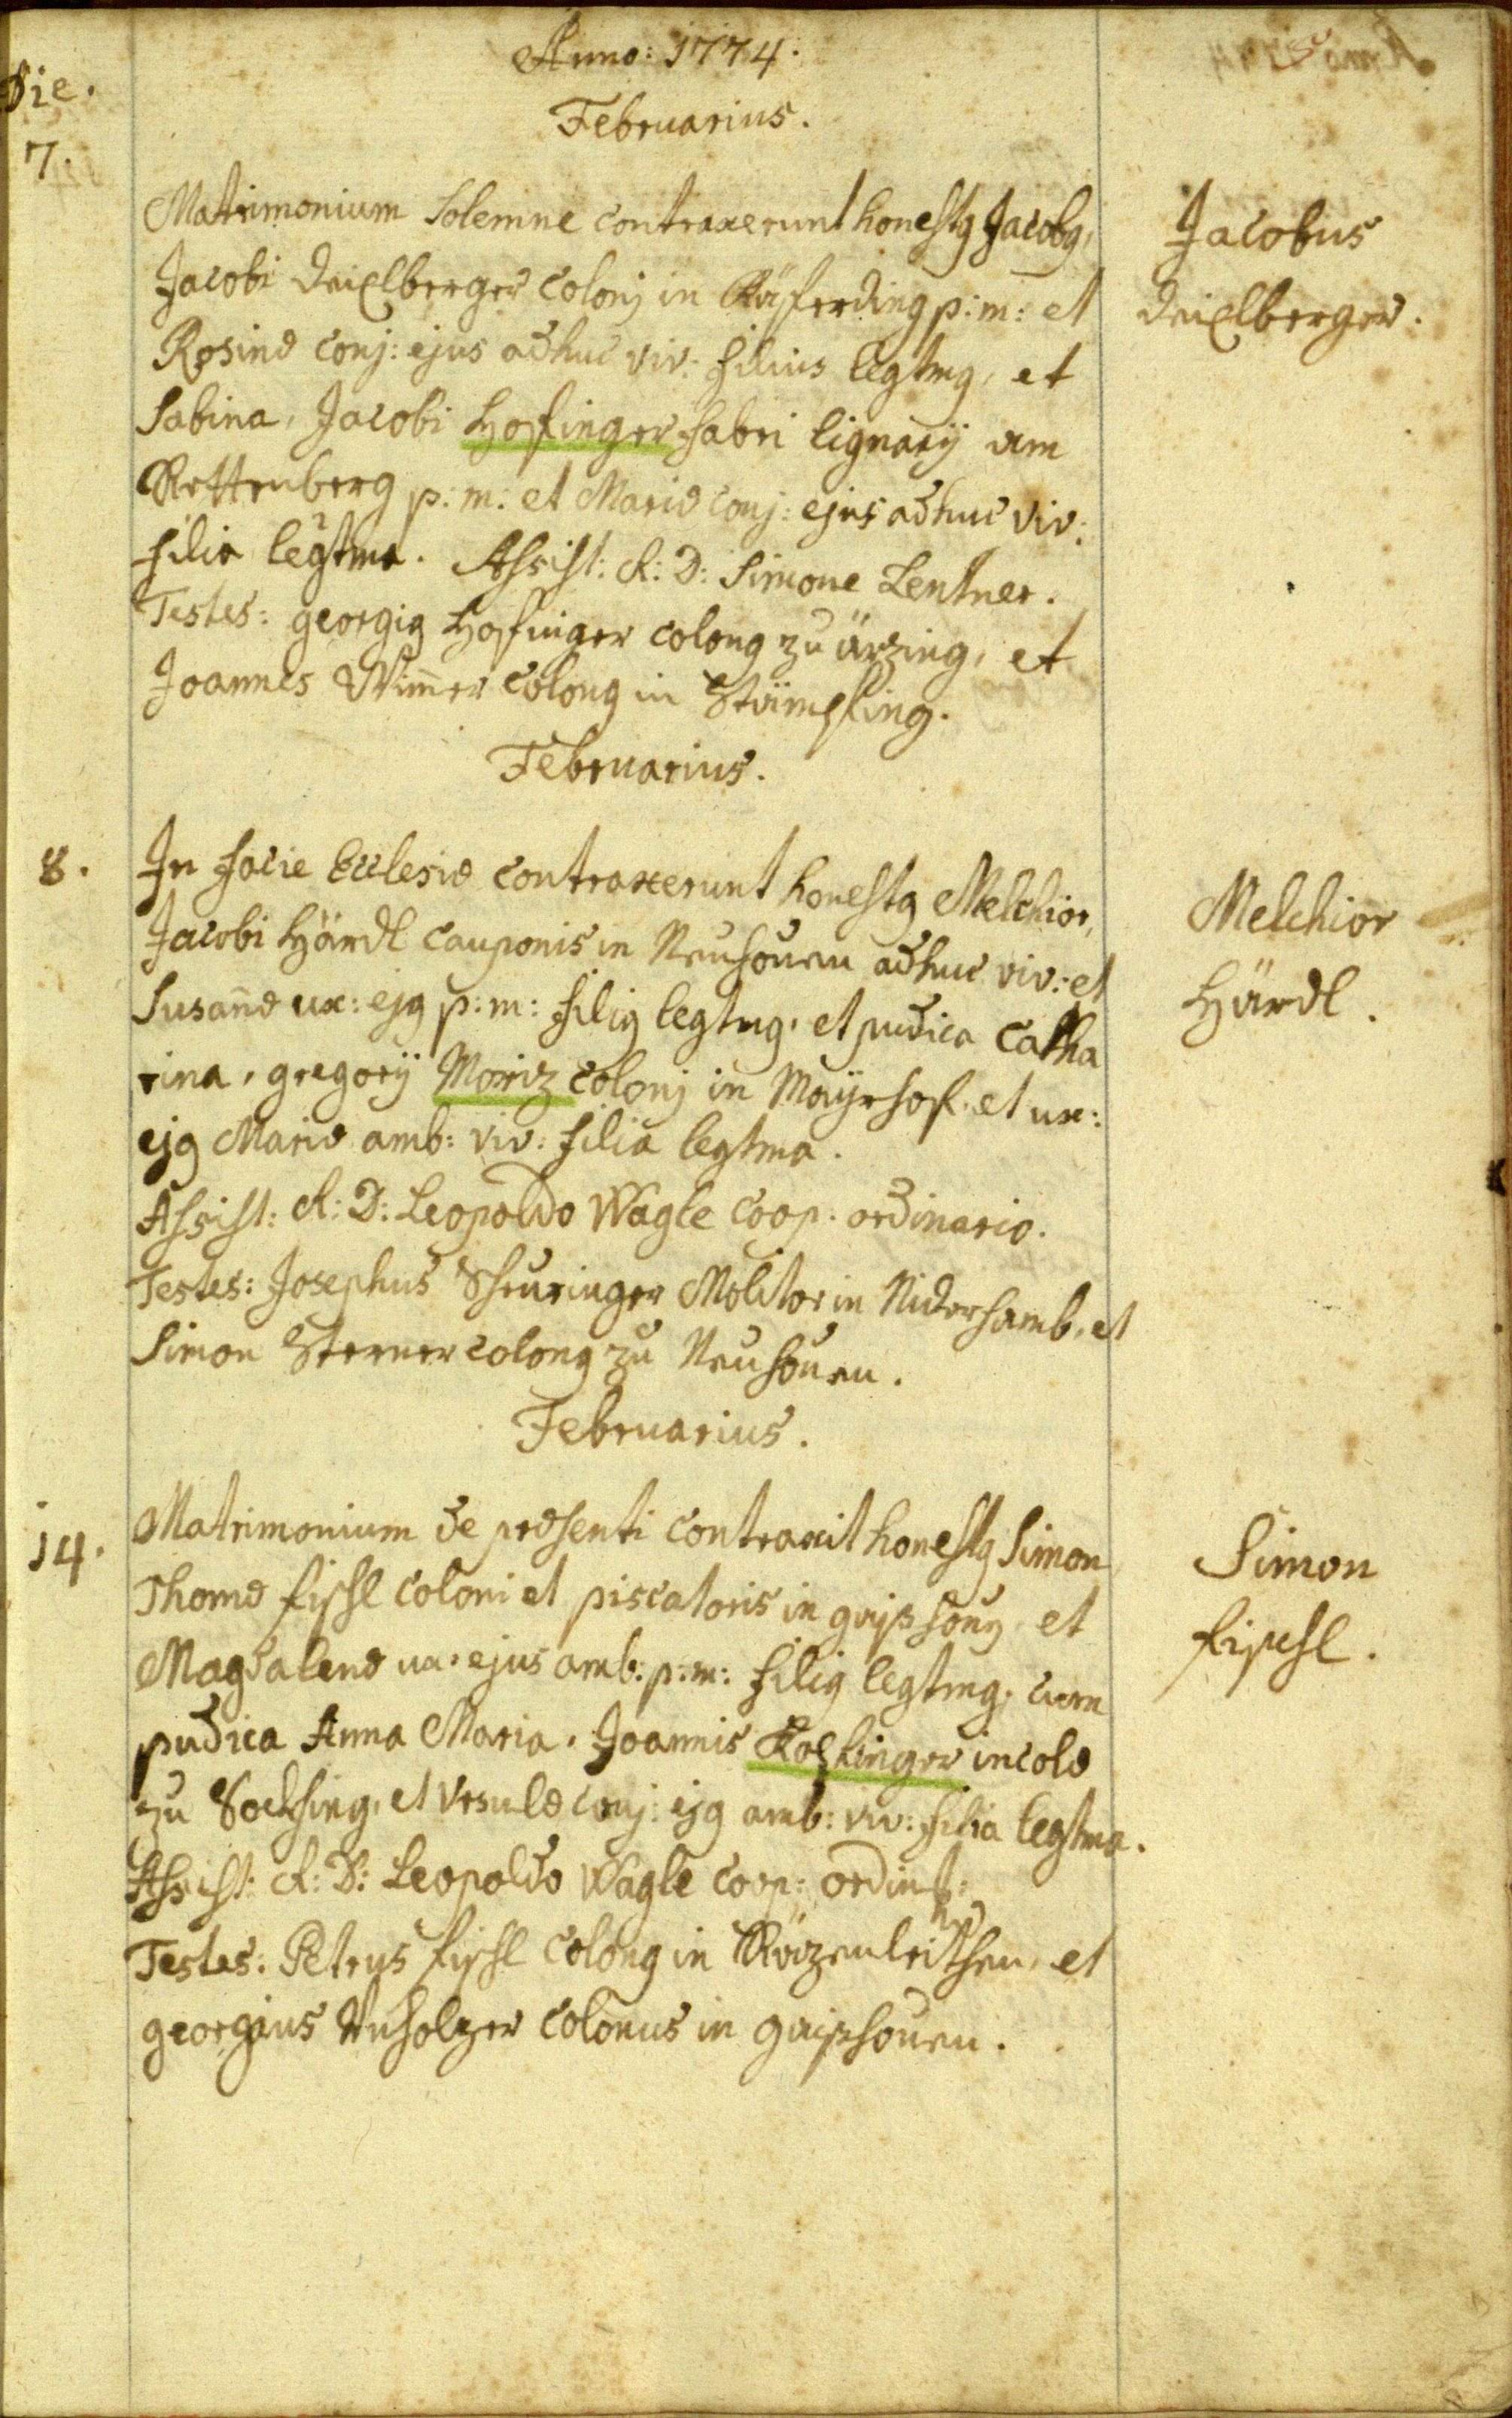 Anno: 1774.
Die.
Februarius.
7.
Matrimonium Solemne contraxerunt honestq Jacobq,
Jacobi Deixlberger colonj in Räferding p: m: et
Rosinæ conj: ejus adhuc viv: filius legtmq, et
Sabina, Jacobi Hofinger fabri lignarÿ am
Rottenberg p: m: et Mariæ conj: ejus adhuc viv:
filia legtma. Assist: R: D: Simone Lentner.
Testes: georgiq Hofinger colonq zu ärzing, et
Joannes Wim̄er colonq in Stämpfing.
Jacobus
Deixlberger.
Februarius.
8.
In facie Ecclesiæ contraxerunt honestq Melchior,
Jacobi Härdl cauponis in Neuhauen adhuc viv: et
Susan̄æ ux: ejq p: m: filiq legtmq, et pudica Catha
rina, gregorÿ Moriz colonj in Maÿrhof, et ux:
ejq Mariæ amb: viv: filia legtma.
Assist: R: D: Leopoldo Wagle Coop. ordinario.
Testes: Josephus Scheuringer Molitor in Niderhamb, et
Simon Sterner colonq zu Neuhauen.
Melchior
Härdl.
Februarius.
14.
Matrimonium de præsenti contraxit honestq Simon
Thomæ fischl coloni et piscatoris in gaishauÿ, et
Magdalenæ ux. ejus amb: p: m: filiq legtmq, cum
pudica Anna Maria, Joannis Köslinger incolæ
zu et Vrsulæ conj: ejq amb: viv: filia legtma.
Assist: R: D: Leopoldo Wagle Coop:
Testes: Petrus fischl colonq in Räzenleithen, et
georgius Anholzer colonus in gaishauen.
Simon
fischl.